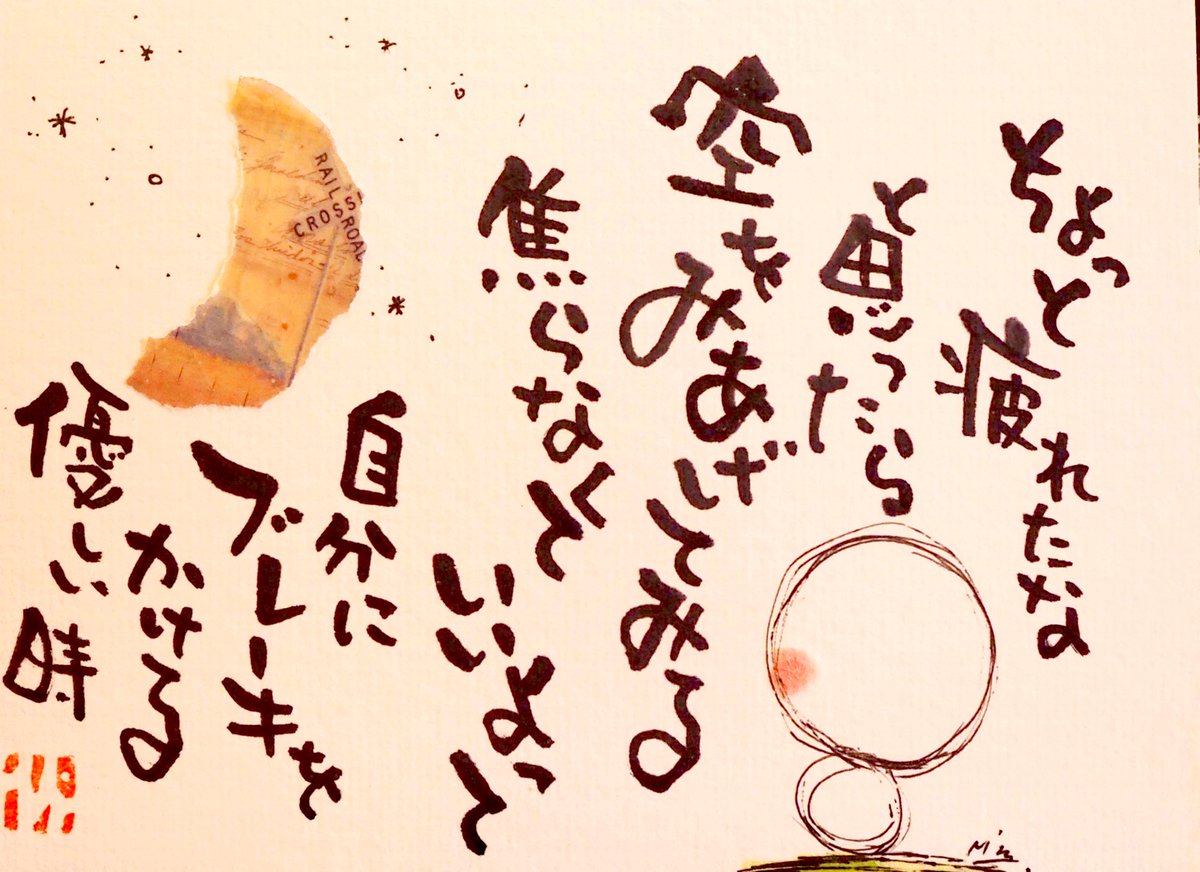 ちょっと
疲れたな
と思ったら
空を
みあげてみる
焦らなくて
いいよって
自分に
ブレーキを
かける
優しい時
RAIL ROAD
CROSSI
M'n